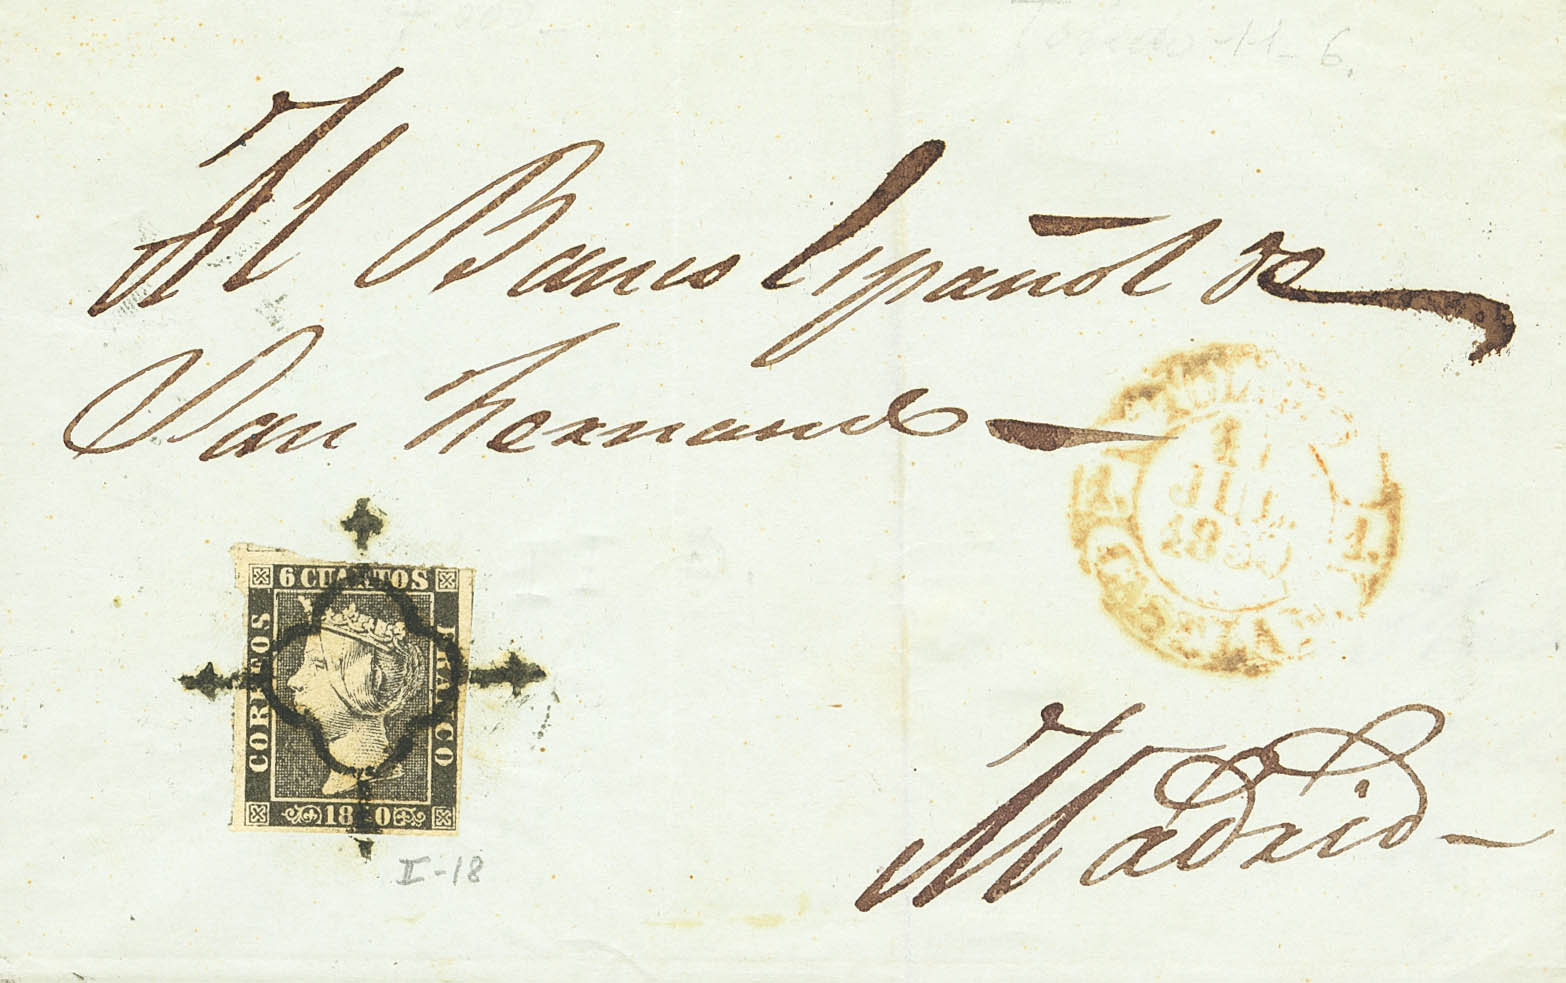 6.
Al Banco Español de
San Fernando
6 CUARTOS
CORREOS
FRANCO
1850
II-18
JUL
1850
Madrid